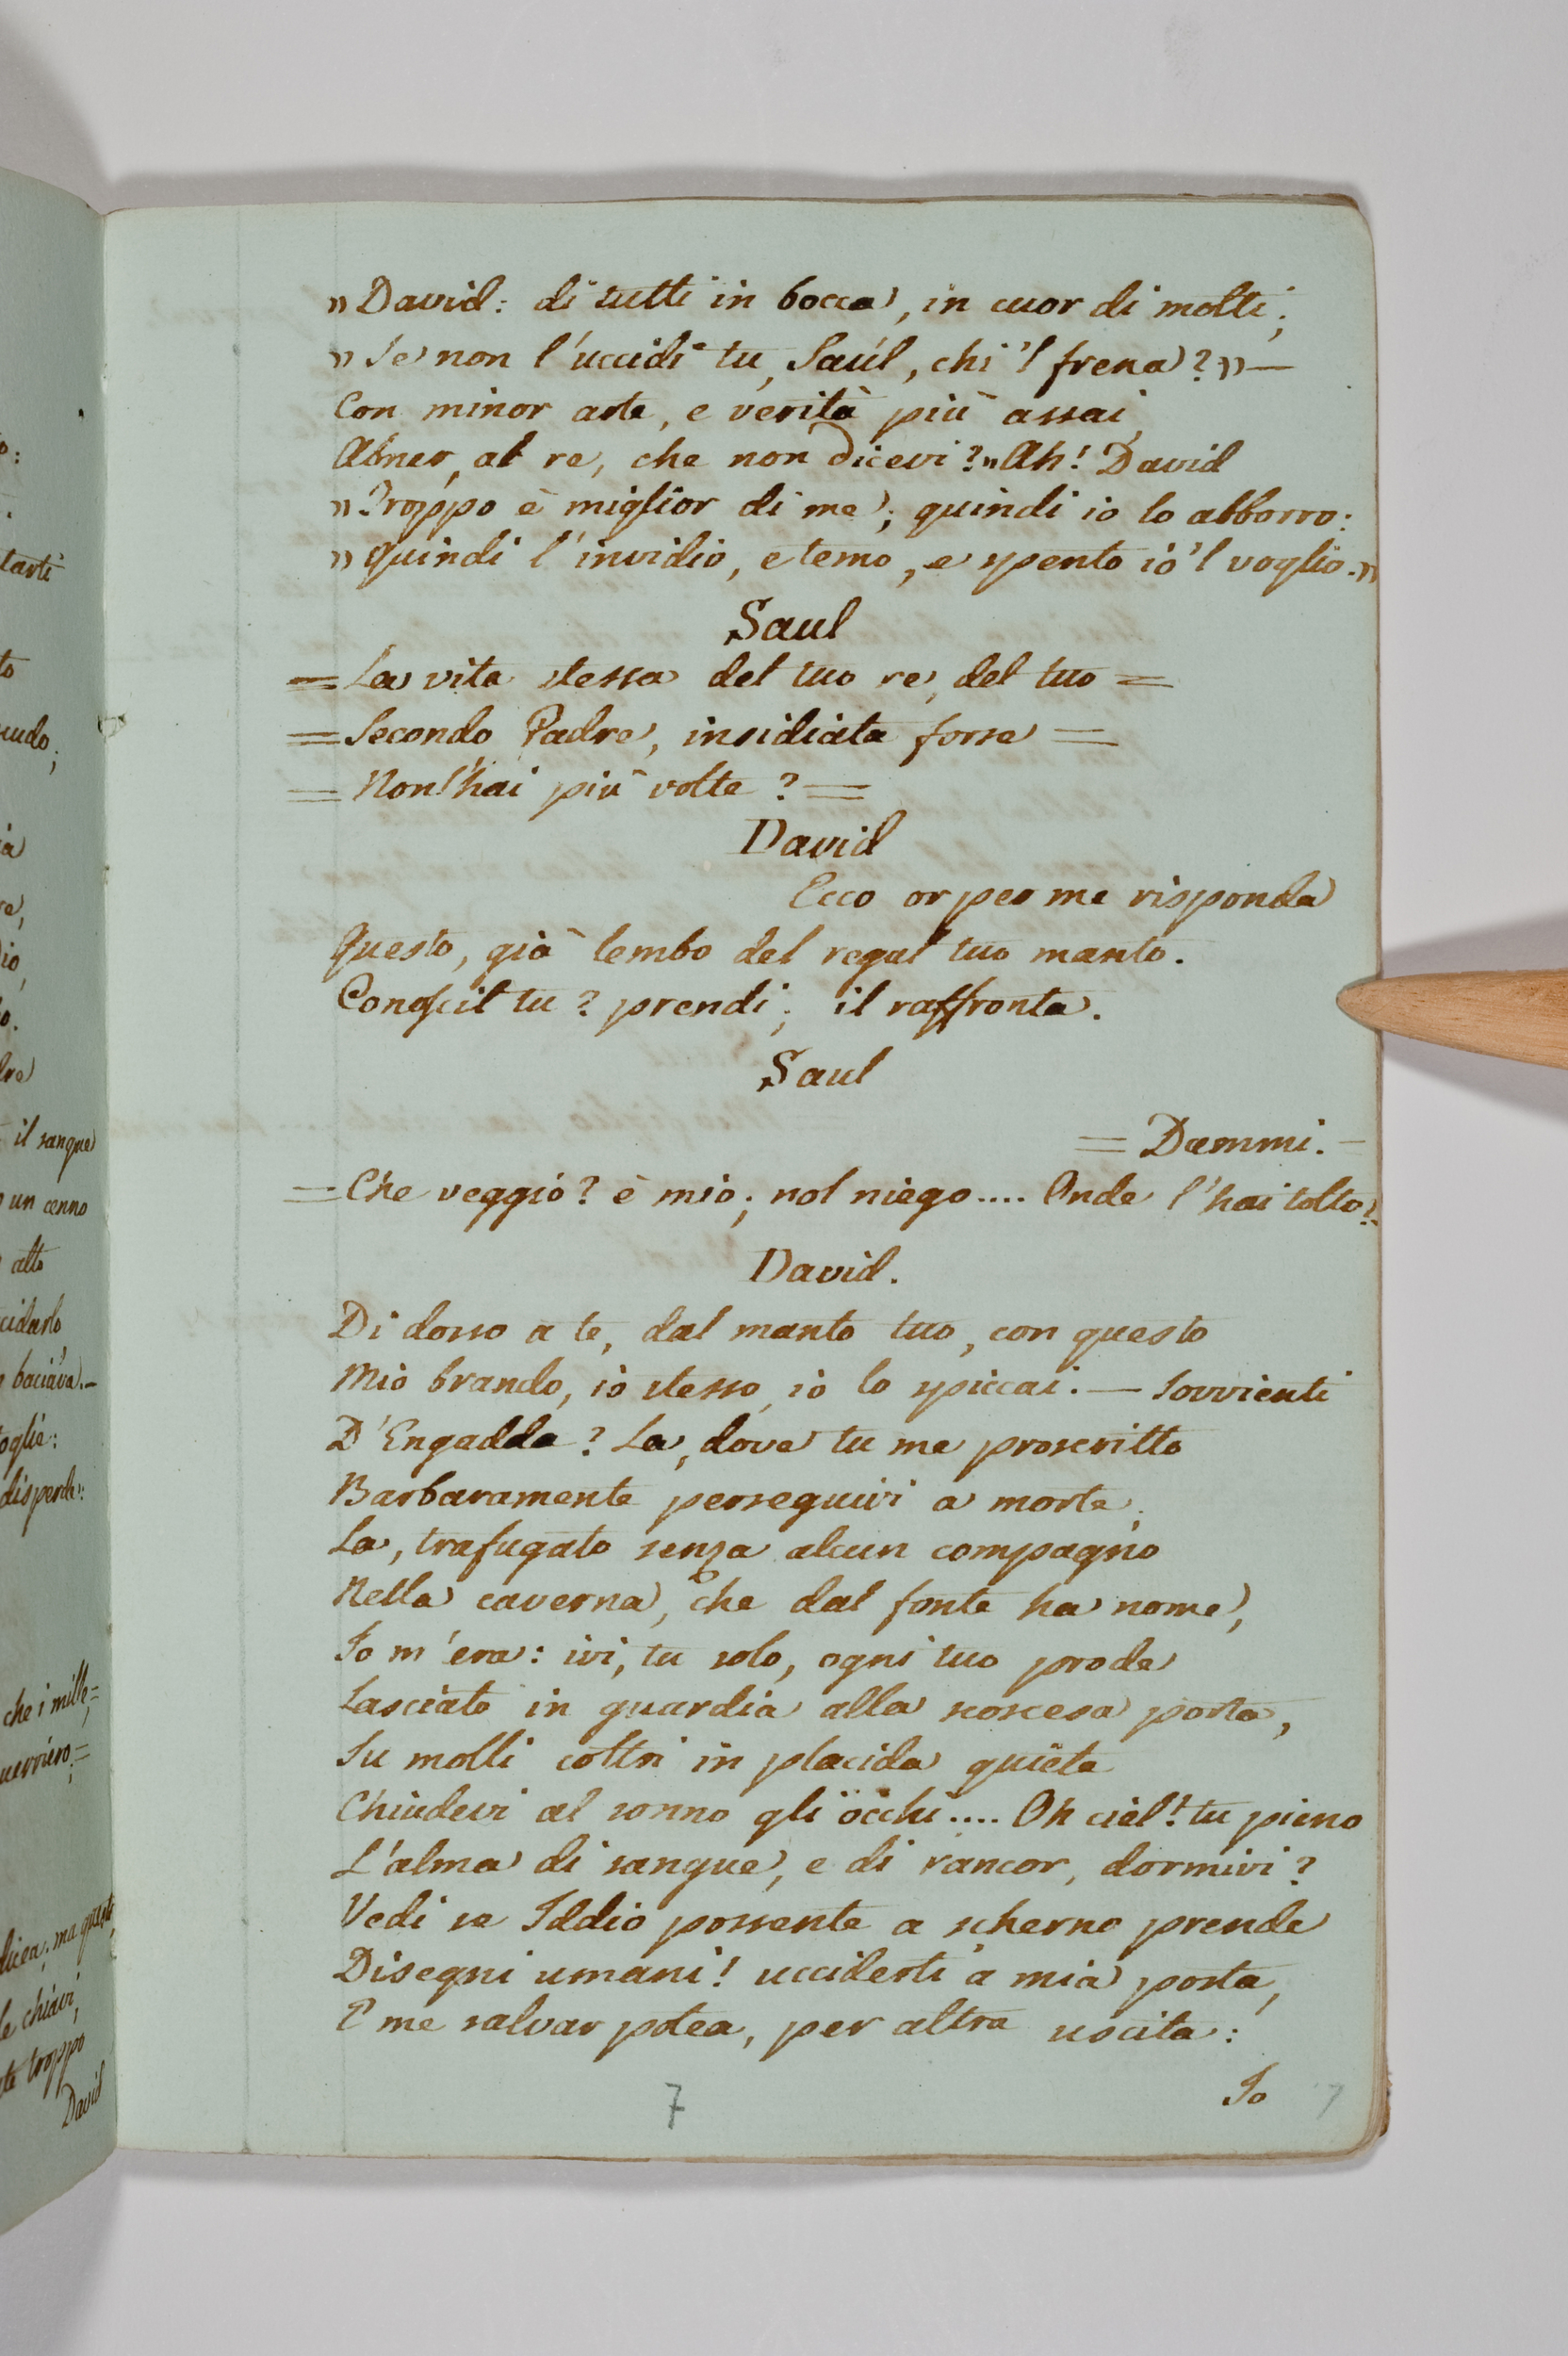 to:
tarti
to
cudo;
ia
re,
Dio,
o.
dre
il sangue
un cenno
alto
ciderlo
baciava.—
toglie:
disperde:
che i mille=
uerriero;=
dicea. ma queste
le chiavi,
te troppo
David
„David: di tutti in bocca, in cuor di molti;
„Se non l'uccidi tu, Saúl, chi 'l frena?„—
Con minor arte, e verità più assai,
Abner, al re, che non dicevi?„Ah! David
„Troppo è miglior di me; quindi io lo abborro:
„quindi l'invidio, e temo, e spento io 'l voglio.„
Saul
=La vita stessa del tuo re, del tuo=
=Secondo Padre, insidiata forse=
=Non l'hai più volte?=
David
Ecco or per me risponda
Questo, già lembo del regal tuo manto.
Conoscil tu? prendi; il raffronta.
Saul
=Dammi.—
=Che veggio? è mio; nol niego.... Onde l'hai tolto?=
David.
Di dosso a te, dal manto tuo, con questo
Mio brando, io stesso, io lo spiccai.— Sovvienti
D'Engadda? La, dove tu me proscritto
Barbaramente perseguivi a morte;
La, trafugato senza alcun compagno
Nella caverna, che dal fonte ha nome,
Io m'era: ivi, tu solo, ogni tuo prode
Lasciato in guardia alla scoscesa porta,
Su molli coltri in placida quiete
Chiudevi al sonno gli occhi.... Oh ciel! tu pieno
L'alma di sangue, e di rancor, dormivi?
Vedi se Iddio possente a scherno prende
Disegni umani! ucciderti a mia posta,
E me salvar potea, per altra uscita:
Io
7
7